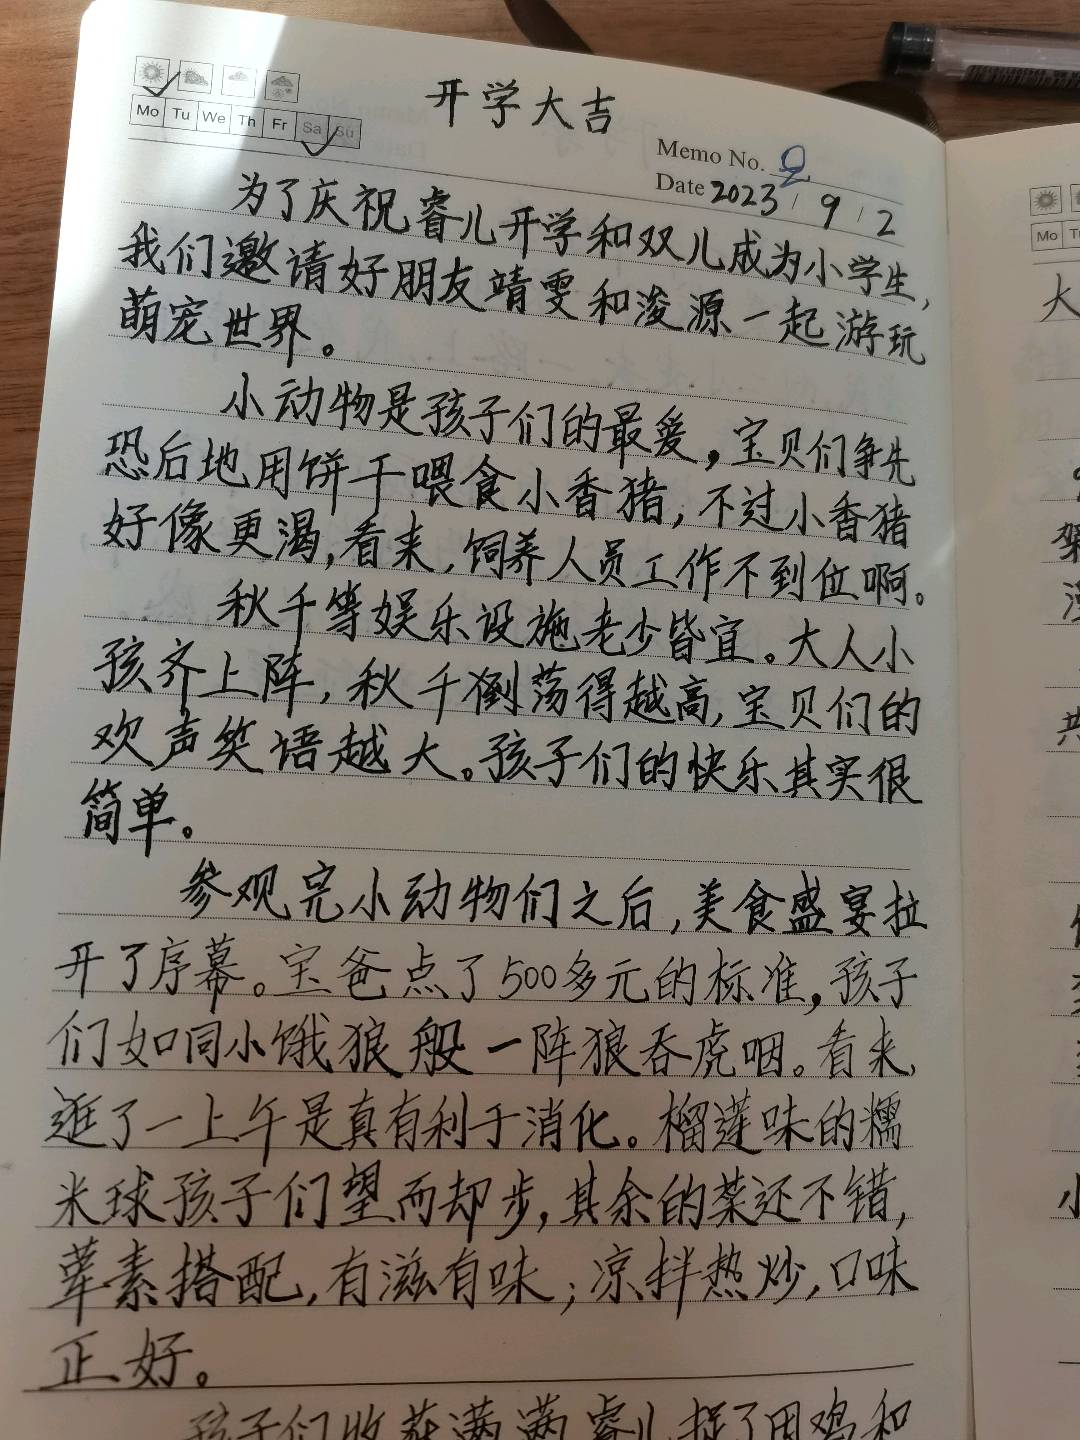 开学大吉
Mo Tu We Th Fr Sa Su
Memo No. 2
Date 2023 / 9 / 2
为了庆祝睿儿开学和双儿成为小学生,
我们邀请好朋友靖雯和浚源一起游玩
萌宠世界。
小动物是孩子们的最爱,宝贝们争先
恐后地用饼干喂食小香猪,不过小香猪
好像更渴,看来,饲养人员工作不到位啊。
秋千等娱乐设施老少皆宜。大人小
孩齐上阵,秋千荡得越高,宝贝们的
欢声笑语越大。孩子们的快乐其实很
简单。
参观完小动物们之后,美食盛宴拉
开了序幕。宝爸点了500多元的标准,孩子
们如同小饿狼般一阵狼吞虎咽。看来,
逛了一上午是真有利于消化。榴莲味的糯
米球孩子们望而却步,其余的菜还不错,
荤素搭配,有滋有味;凉拌热炒,口味
正好。
孩子们收获满满睿儿捉了田鸡和
Mo
大